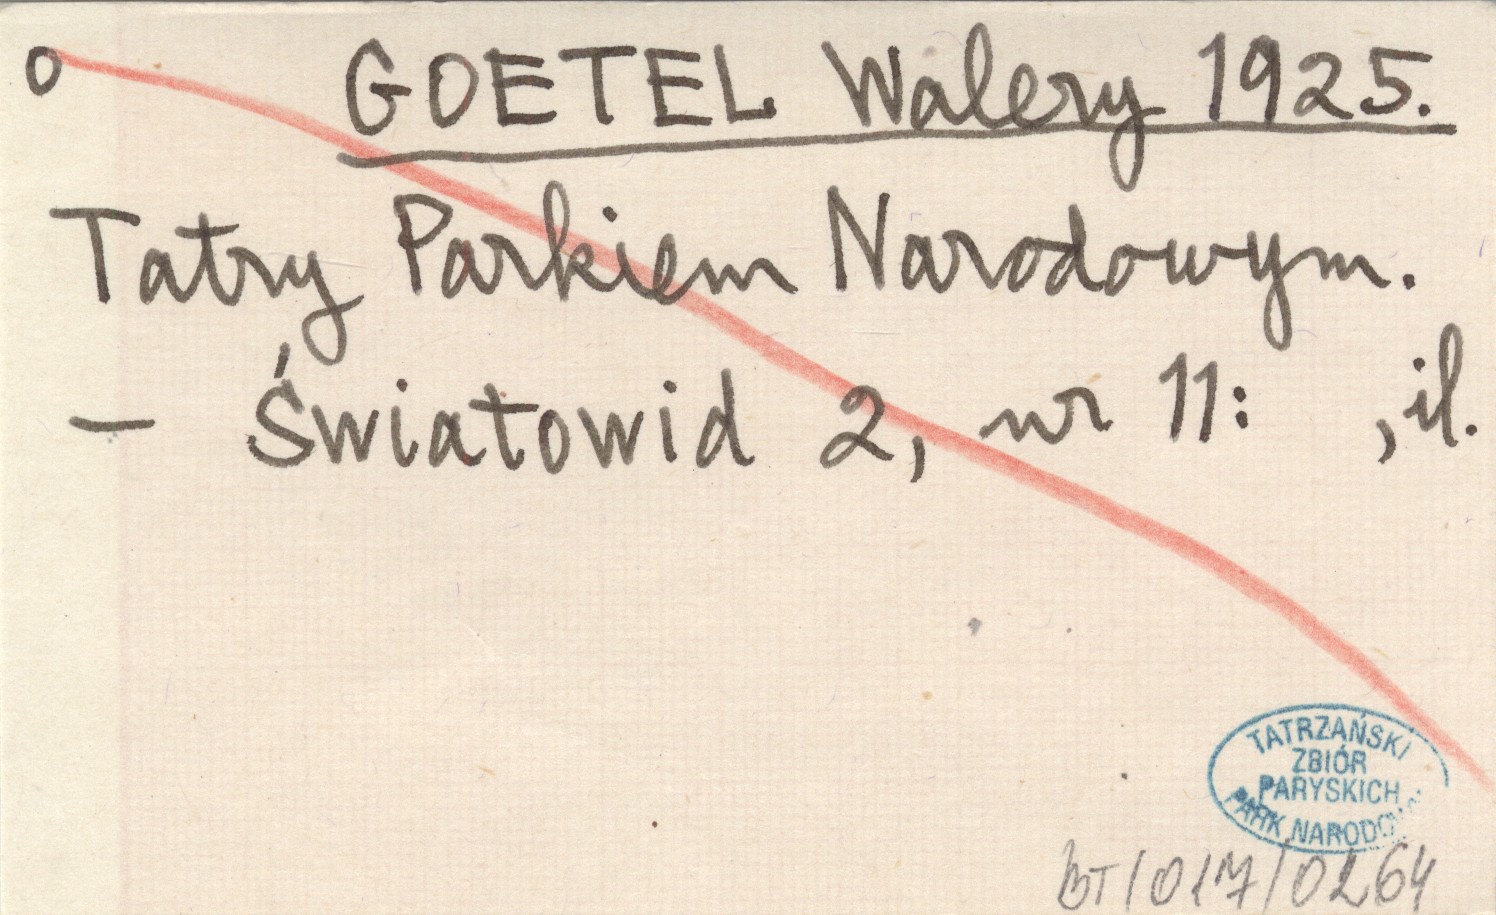 o GOETEL Walery 1925.
Tatry Parkiem Narodowym.
– Światowid 2, nr 11: , il.
TATRZAŃSKI
ZBIÓR
PARYSKICH
PARK NARODOWY
BT/017/0264